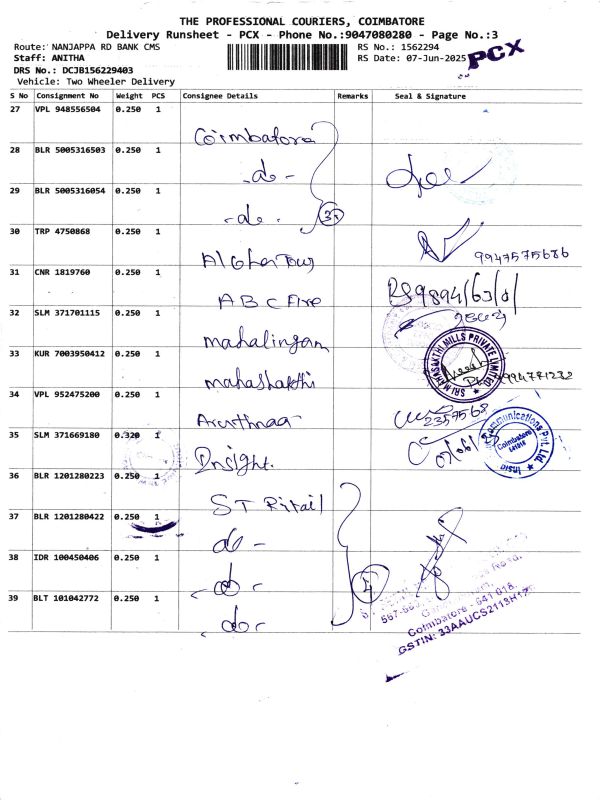 THE PROFESSIONAL COURIERS, COIMBATORE
Delivery Runsheet - PCX - Phone No.:9047080280 - Page No.:3
Route: NANJAPPA RD BANK CMS
RS No.: 1562294
Staff: ANITHA
RS Date: 07-Jun-2025
PCX
DRS No.: DCJB156229403
Vehicle: Two Wheeler Delivery
S No Consignment No Weight PCS Consignee Details Remarks Seal & Signature
27 VPL 948556504 0.250 1 Coimbatore
28 BLR 5005316503 0.250 1 -do-
29 BLR 5005316054 0.250 1 -do-
30 TRP 4750868 0.250 1 9947575686
31 CNR 1819760 0.250 1 ABC Fire
32 SLM 371701115 0.250 1 mahalingam
33 KUR 7003950412 0.250 1 mahashakthi
SRI MAHASAKTHI MILLS PRIVATE LIMITED
34 VPL 952475200 0.250 1
35 SLM 371669180 0.320 1 Insight
Communications Pvt. Ltd.
Coimbatore
641018
36 BLR 1201280223 0.250 1
37 BLR 1201280422 0.250 1 do -
38 IDR 100450406 0.250 1 - do -
39 BLT 101042772 0.250 1 - do -
Coimbatore - 641 018.